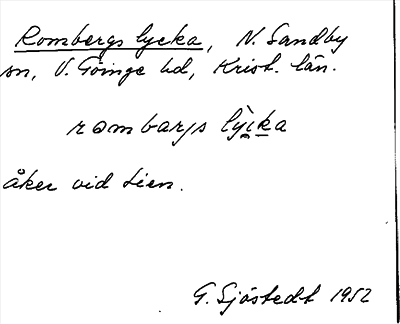 Rombergs lycka, N. Sandby
sn, V. Göinge hd, Krist. län.
rombarjs lỳcka
åker vid Lien.
G. Sjöstedt 1952